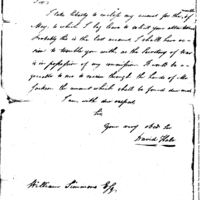 Sir,
I take liberty to enclose my account for the 1st
May, to which I beg leave to solicit your attention
Probably this is the last account I shall have occa-
sion to trouble you with as the Secretary of War
is in possession of my commission. It would be a-
greeable to me to receive through the hands of Mr
Jackson the amount which shall be found due me
I am with due respect
Sir
Your very Obt Se
David
William Simmons Esq.